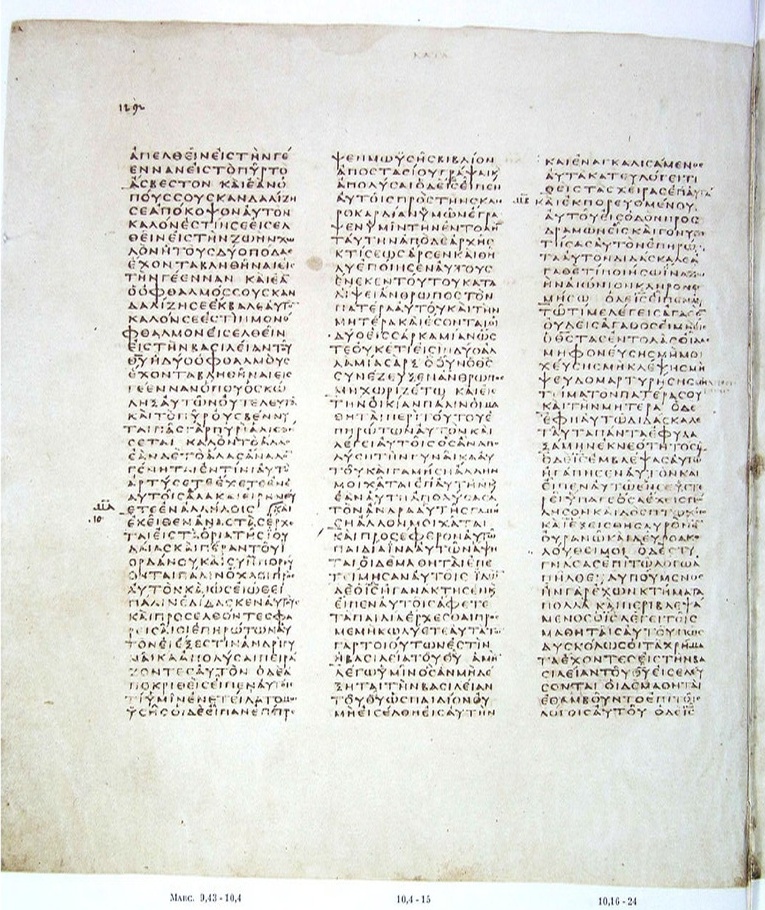 ΚΑΤΑ
1292
ΑΠΕΛΘΕΙΝΕΙϹΤΗΝΓΕ
ΕΝΝΑΝΕΙϹΤΟΠΥΡΤΟ
ΑϹΒΕϹΤΟΝ ΚΑΙΕΑΝΟ
ΠΟΥϹϹΟΥϹΚΑΝΔΑΛΙΖΗ
ϹΕΑΠΟΚΟΨΟΝΑΥΤΟΝ
ΚΑΛΟΝΕϹΤΙΝϹΕΕΙϹΕΛ
ΘΕΙΝΕΙϹΤΗΝΖΩΗΝΧΩ
ΛΟΝΗΤΟΥϹΔΥΟΠΟΔΑϹ
ΕΧΟΝΤΑΒΛΗΘΗΝΑΙΕΙϹ
ΤΗΝΓΕΕΝΝΑΝ ΚΑΙΕΑ
ΟΟΦΘΑΛΜΟϹϹΟΥϹΚΑΝ
ΔΑΛΙΖΗϹΕΕΚΒΑΛΕΑΥΤΟ
ΚΑΛΟΝϹΕΕϹΤΙΝΜΟΝΟ
ΦΘΑΛΜΟΝΕΙϹΕΛΘΕΙΝ
ΕΙϹΤΗΝΒΑϹΙΛΕΙΑΝΤΟΥ
ΘΥΗΔΥΟΟΦΘΑΛΜΟΥϹ
ΕΧΟΝΤΑΒΛΗΘΗΝΑΙΕΙϹ
ΓΕΕΝΝΑΝΟΠΟΥΟϹΚΩ
ΛΗΞΑΥΤΩΝΟΥΤΕΛΕΥΤΑ
ΚΑΙΤΟΠΥΡΟΥϹΒΕΝΝΥ
ΤΑΙΠΑϹΓΑΡΠΥΡΙΑΛΙϹΘΗ
ϹΕΤΑΙ ΚΑΛΟΝΤΟΑΛΑϹ
ΕΑΝΔΕΤΟΑΛΑϹΑΝΑΛΟ
ΓΕΝΗΤΑΙΕΝΤΙΝΙΑΥΤΟ
ΑΡΤΥϹΕΤΕΕΧΕΤΕΕΝΕ
ΑΥΤΟΙϹΑΛΑΚΑΙΕΙΡΗΝΕΥ
ΕΤΕΕΝΑΛΛΗΛΟΙϹ ΚΑΙ
ΕΚΕΙΘΕΝΑΝΑϹΤΑϹΕΡΧΕ
ΤΑΙΕΙϹΤΑΟΡΙΑΤΗϹΙΟΥ
ΔΑΙΑϹΚΑΙΠΕΡΑΝΤΟΥΙ
ΟΡΔΑΝΟΥΚΑΙϹΥΝΠΟΡΕΥ
ΟΝΤΑΙΠΑΛΙΝΟΧΛΟΙΠΡΟϹ
ΑΥΤΟΝΚΑΙΩϹΕΙΩΘΕΙ
ΠΑΛΙΝΕΔΙΔΑϹΚΕΝΑΥΤΟΥϹ
ΚΑΙΠΡΟϹΕΛΘΟΝΤΕϹΦΑ
ΡΕΙϹΑΙΟΙΕΠΗΡΩΤΩΝΑΥ
ΤΟΝΕΙΕΞΕϹΤΙΝΑΝΔΡΙΓΥ
ΝΑΙΚΑΑΠΟΛΥϹΑΙΠΕΙΡΑ
ΖΟΝΤΕϹΑΥΤΟΝ ΟΔΕΑ
ΠΟΚΡΙΘΕΙϹΕΙΠΕΝΑΥΤΟΙϹ
ΤΙΥΜΙΝΕΝΕΤΕΙΛΑΤΟΜΩ
ΥϹΗϹΟΙΔΕΕΙΠΑΝΕΠΕΤΡΕ
ΨΕΝΜΩΥϹΗϹΒΙΒΛΙΟΝ
ΑΠΟϹΤΑϹΙΟΥΓΡΑΨΑΙΚ
ΑΠΟΛΥϹΑΙΟΔΕΙϹΕΙΠΕΝ
ΑΥΤΟΙϹΠΡΟϹΤΗΝϹΚΛΗ
ΡΟΚΑΡΔΙΑΝΥΜΩΝΕΓΡΑ
ΨΕΝΥΜΙΝΤΗΝΕΝΤΟΛΗ
ΤΑΥΤΗΝΑΠΟΔΕΑΡΧΗϹ
ΚΤΙϹΕΩϹΑΡϹΕΝΚΑΙΘΗ
ΛΥΕΠΟΙΗϹΕΝΑΥΤΟΥϹ
ΕΝΕΚΕΝΤΟΥΤΟΥΚΑΤΑ
ΛΙΨΕΙΑΝΘΡΩΠΟϹΤΟΝ
ΠΑΤΕΡΑΑΥΤΟΥΚΑΙΤΗΝ
ΜΗΤΕΡΑΚΑΙΕϹΟΝΤΑΙΟΙ
ΔΥΟΕΙϹϹΑΡΚΑΜΙΑΝΩϹ
ΤΕΟΥΚΕΤΙΕΙϹΙΝΔΥΟΑΛ
ΛΑΜΙΑϹΑΡΞ ΟΟΥΝΟΘϹ
ϹΥΝΕΖΕΥΞΕΝΑΝΘΡΩΠΟϹ
ΜΗΧΩΡΙΖΕΤΩ ΚΑΙΕΙϹ
ΤΗΝΟΙΚΙΑΝΠΑΛΙΝΟΙΜΑ
ΘΗΤΑΙΠΕΡΙΤΟΥΤΟΥΕ
ΠΗΡΩΤΩΝΑΥΤΟΝΚΑΙ
ΛΕΓΕΙΑΥΤΟΙϹΟϹΑΝΑΠΟ
ΛΥϹΗΤΗΝΓΥΝΑΙΚΑΑΥ
ΤΟΥΚΑΙΓΑΜΗϹΗΑΛΛΗΝ
ΜΟΙΧΑΤΑΙΕΠΑΥΤΗΝΚ
ΕΑΝΑΥΤΗΑΠΟΛΥϹΑϹΑ
ΤΟΝΑΝΔΡΑΑΥΤΗϹΓΑΜΗ
ϹΗΑΛΛΟΝΜΟΙΧΑΤΑΙ
ΚΑΙΠΡΟϹΕΦΕΡΟΝΑΥΤΩ
ΠΑΙΔΙΑΙΝΑΑΥΤΩΝΑΨΗ
ΤΑΙΟΙΔΕΜΑΘΗΤΑΙΕΠΕ
ΤΕΙΜΗϹΑΝΑΥΤΟΙϹ ΙΔΩ
ΔΕΟΙϹΗΓΑΝΑΚΤΗϹΕΝΚ
ΕΙΠΕΝΑΥΤΟΙϹΑΦΕΤΕ
ΤΑΠΑΙΔΙΑΕΡΧΕϹΘΑΙΠΡΟϹ
ΜΕΜΗΚΩΛΥΕΤΕΑΥΤΑΤΩ
ΓΑΡΤΟΙΟΥΤΩΝΕϹΤΙΝ
ΗΒΑϹΙΛΕΙΑΤΟΥΘΥ ΑΜΗ
ΛΕΓΩΥΜΙΝΟϹΑΝΜΗΔΕ
ΞΗΤΑΙΤΗΝΒΑϹΙΛΕΙΑΝ
ΤΟΥΘΥΩϹΠΑΙΔΙΟΝΟΥ
ΜΗΕΙϹΕΛΘΗΕΙϹΑΥΤΗΝ
ΚΑΙΕΝΑΓΚΑΛΙϹΑΜΕΝΟϹ
ΑΥΤΑΚΑΤΕΥΛΟΓΕΙΤΙ
ΘΕΙϹΤΑϹΧΕΙΡΑϹΕΠΑΥΤΑ
ΚΑΙΕΚΠΟΡΕΥΟΜΕΝΟΥ
ΑΥΤΟΥΕΙϹΟΔΟΝΠΡΟϹ
ΔΡΑΜΩΝΕΙϹΚΑΙΓΟΝΥΠΕ
ΤΗϹΑϹΑΥΤΟΝΕΠΗΡΩ
ΤΑΑΥΤΟΝΔΙΔΑϹΚΑΛΕΑ
ΓΑΘΕΤΙΠΟΙΗϹΩΙΝΑΖΩ
ΗΝΑΙΩΝΙΟΝΚΛΗΡΟΝΟ
ΜΗϹΩ ΟΔΕΙϹΕΙΠΕΝΑΥ
ΤΩΤΙΜΕΛΕΓΕΙϹΑΓΑΘΟ
ΟΥΔΕΙϹΑΓΑΘΟϹΕΙΜΗΕΙϹ
ΟΘϹΤΑϹΕΝΤΟΛΑϹΟΙΔΑϹ
ΜΗΦΟΝΕΥϹΗϹΜΗΜΟΙ
ΧΕΥϹΗϹΜΗΚΛΕΨΗϹΜΗ
ΨΕΥΔΟΜΑΡΤΥΡΗϹΗϹ
ΤΕΙΜΑΤΟΝΠΑΤΕΡΑϹΟΥ
ΚΑΙΤΗΝΜΗΤΕΡΑ ΟΔΕ
ΕΦΗΑΥΤΩΔΙΔΑϹΚΑΛΕ
ΤΑΥΤΑΠΑΝΤΑΕΦΥΛΑ
ΞΑΜΗΝΕΚΝΕΟΤΗΤΟϹΜΟΥ
ΟΔΕΙϹΕΜΒΛΕΨΑϹΑΥΤΩ
ΗΓΑΠΗϹΕΝΑΥΤΟΝΚΑΙ
ΕΙΠΕΝΑΥΤΩΕΝϹΕΥϹΤΕ
ΡΕΙΥΠΑΓΕΟϹΑΕΧΕΙϹΠΩ
ΛΗϹΟΝΚΑΙΔΟϹΠΤΩΧΟΙϹ
ΚΑΙΕΞΕΙϹΘΗϹΑΥΡΟΝΕΝ
ΟΥΡΑΝΩΚΑΙΔΕΥΡΟΑΚΟ
ΛΟΥΘΕΙΜΟΙ ΟΔΕϹΤΥ
ΓΝΑϹΑϹΕΠΙΤΩΛΟΓΩΑ
ΠΗΛΘΕΛΥΠΟΥΜΕΝΟϹ
ΗΝΓΑΡΕΧΩΝΚΤΗΜΑΤΑ
ΠΟΛΛΑ ΚΑΙΠΕΡΙΒΛΕΨΑ
ΜΕΝΟϹΟΙϹΛΕΓΕΙΤΟΙϹ
ΜΑΘΗΤΑΙϹΑΥΤΟΥΠΩϹ
ΔΥϹΚΟΛΩϹΟΙΤΑΧΡΗΜΑ
ΤΑΕΧΟΝΤΕϹΕΙϹΤΗΝΒΑ
ϹΙΛΕΙΑΝΤΟΥΘΥΕΙϹΕΛΕΥ
ϹΟΝΤΑΙ ΟΙΔΕΜΑΘΗΤΑΙ
ΕΘΑΜΒΟΥΝΤΟΕΠΙΤΟΙϹ
ΛΟΓΟΙϹΑΥΤΟΥ ΟΔΕΙϹ
Marc. 9,43 - 10,4
10,4 - 15
10,16 - 24